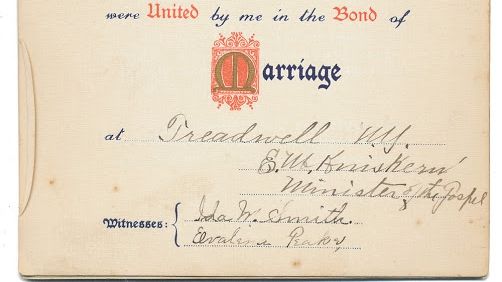 were United by me in the Bond of
Marriage
at Treadwell N.Y.
E. W. Kniskern
Minister of the Gospel
Witnesses: Ida W. Smith.
Evaline